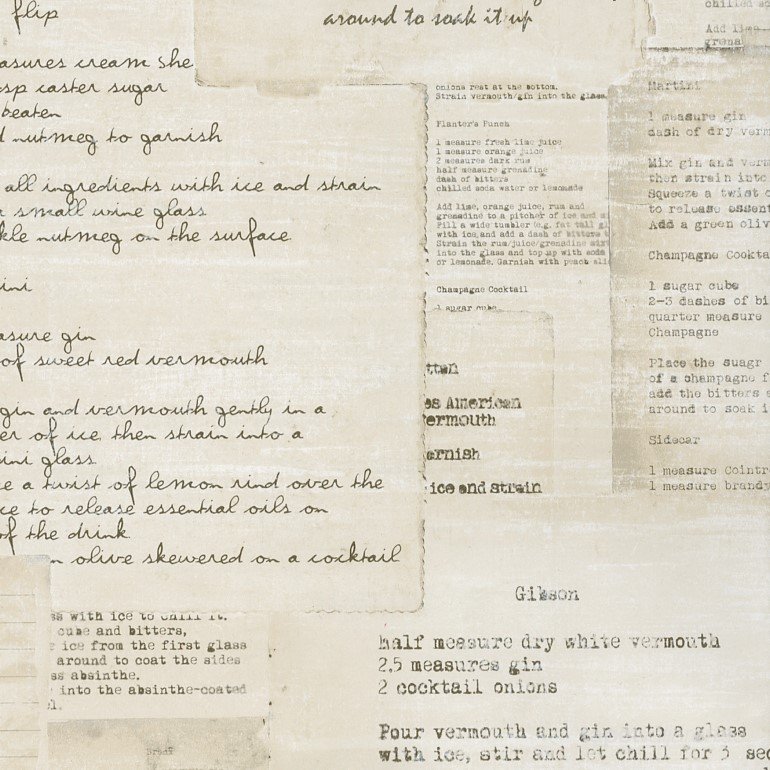 flip
asures cream She
sp caster sugar
beaten
d nutmeg to garnish
all ingredients with ice and strain
a small wine glass
kle nutmeg on the surface
ini
asure gin
of sweet red vermouth
gin and vermouth gently in a
er of ice, then strain into a
ini glass
e a twist of lemon rind over the
ce to release essential oils on
of the drink
n olive skewered on a cocktail
around to soak it up
onions rest at the bottom.
Strain vermouth/gin into the glass
Planter's Punch
1 measure fresh lime juice
1 measure orange juice
2 measures dark rum
half measure grenadine
dash of bitters
chilled soda water or lemonade
Add lime, orange juice, rum and
grenadine to a pitcher of ice and
Fill a wide tumbler (e.g. fat tall gl
with ice, and add a dash of bitters
Strain the rum/juice/grenadine mix
into the glass and top up with soda
or lemonade. Garnish with peach sli
Champagne Cocktail
1 sugar cube
tten
es American
ermouth
arnish
ice and strain
chilled so
Add lime
grena
Martini
1 measure gin
dash of dry verm
Mix gin and verm
then strain into
Squeeze a twist o
to release essent
Add a green oliv
Champagne Cockta
1 sugar cube
2-3 dashes of bi
quarter measure
Champagne
Place the suagr
of a champagne f
add the bitters a
around to soak i
Sidecar
1 measure Cointr
1 measure brandy
ss with ice to chill it.
cube and bitters,
r ice from the first glass
around to coat the sides
ss absinthe.
into the absinthe-coated
l.
Gibson
half measure dry white vermouth
2.5 measures gin
2 cocktail onions
Pour vermouth and gin into a glass
with ice, stir and let chill for 3 sec